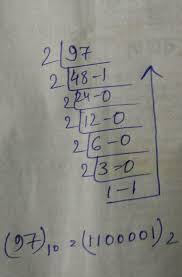 2 | 97
2 | 48-1
2 | 24-0
2 | 12-0
2 | 6-0
2 | 3-0
1-1
(97)₁₀ = (1100001)₂